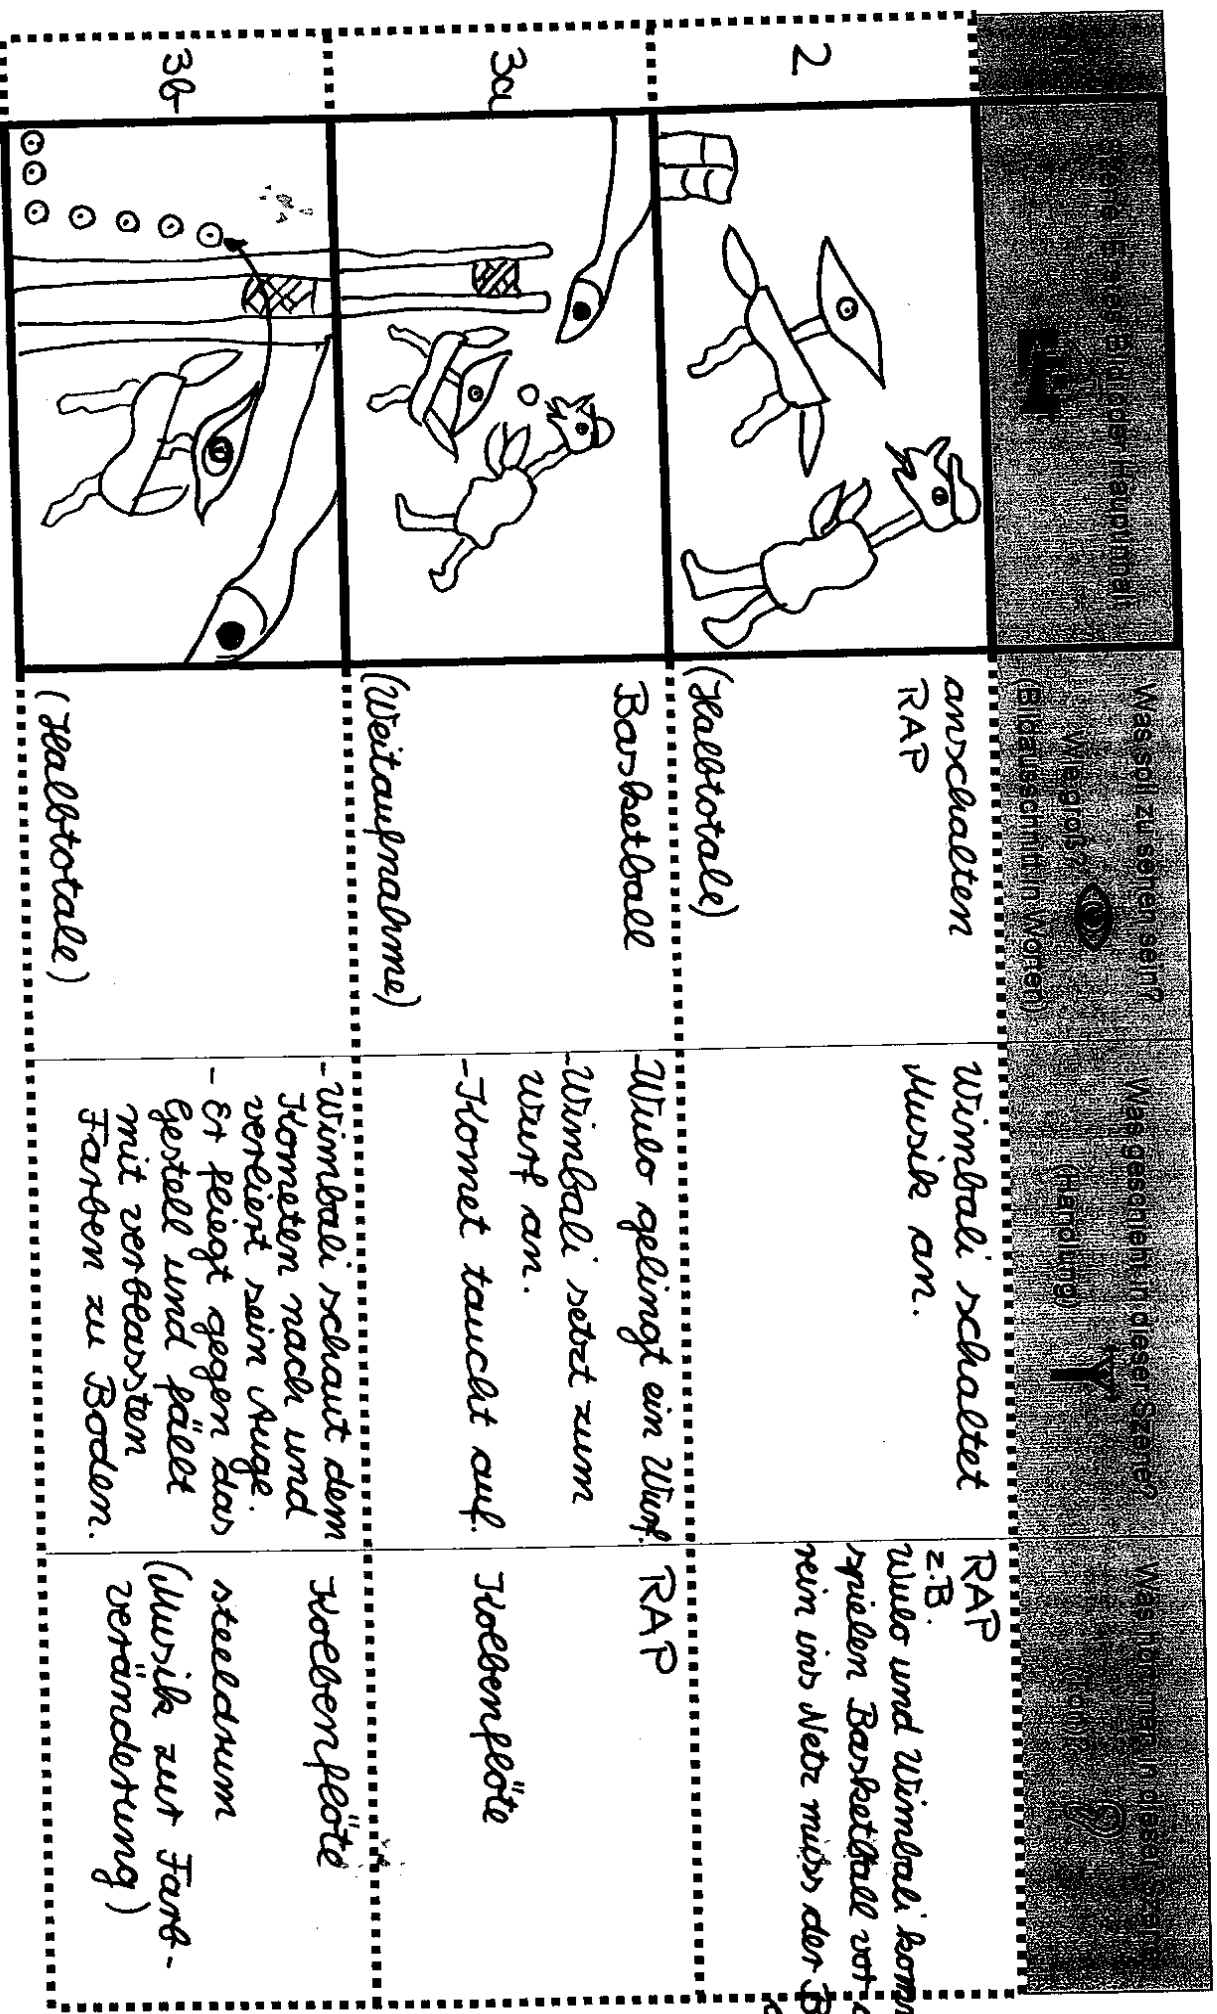 Skizze Erstes Bild oder Hauptinhalt
Was soll zu sehen sein?
Wie groß?
(Bildausschnitt in Worten)
Was geschieht in dieser Szene?
(Handlung)
Was hört man in dieser Szene
(Ton)
2
anschalten
RAP
(Halbtotale)
Wimbali schaltet
Musik an.
RAP
z.B.
Wulo und Wimbali
spielen Basketball vor
rein ins Netz muss der
3a
Basketball
(Weitaufnahme)
-Wulo gelingt ein Wurf.
-Wimbali setzt zum
Wurf an.
-Komet taucht auf.
RAP
Kolbenflöte
3b
(Halbtotale)
-Wimbali schaut dem
Kometen nach und
verliert sein Auge.
- Er fliegt gegen das
Gestell und fällt
mit verblassten
Farben zu Boden.
Kolbenflöte
steeldrum
(Musik zur Farb-
veränderung)